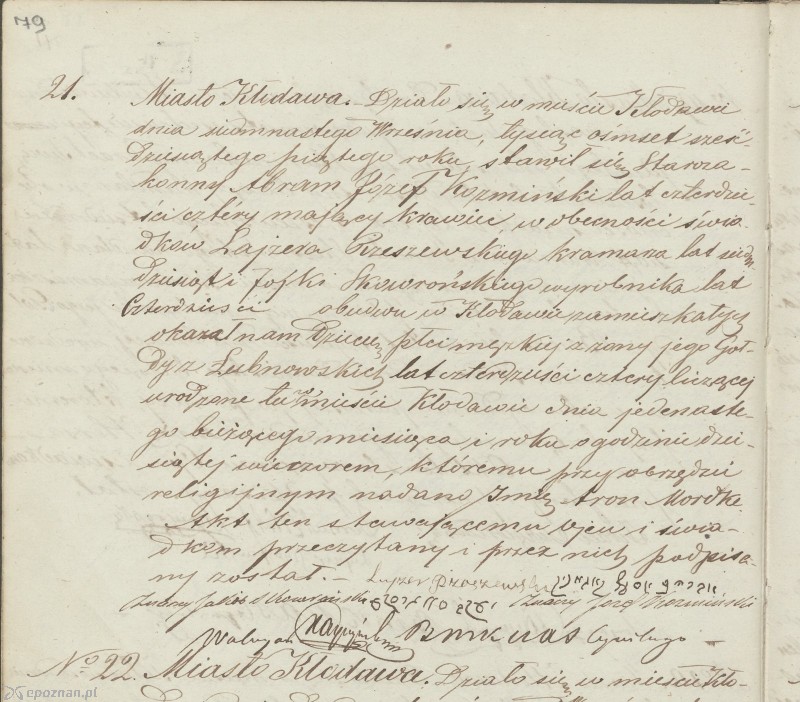 79
21. Miasto Kłodawa. Działo się w mieście Kłodawie
dnia siedmnastego Września, tysiąc ośmset sześć-
dziesiątego piątego roku, stawił się Staroza-
konny Abram Józef Koźmiński lat czterdzie-
ści cztéry mający krawiec, w obecności świa-
dków Lajzera Przeszewskiego kramarza lat siedm
dziesiąt i Jośki Skowrońskiego wyrobnika lat
Czterdzieści obudwu w Kłodawie zamieszkałych
okazał nam dziecię płci męzkiej z żony jego Goł-
dy z Lubnowskich lat czterdzieści cztery liczącej
urodzone tu w mieście Kłodawie dnia jedenaste-
go bieżącego miesiąca i roku o godzinie dzie-
siątej wieczorem, któremu przy obrzędzie
religijnym nadano Imię Aron Mordke
Akt ten stawającemu ojcu i świa-
dkom przeczytany i przez nich podpisa-
ny został. – Lajzer
Znany Jakób Skowroński Znany Józef Koźmiński
Cywilnego –
No 22. Miasto Kłodawa. Działo się w mieście Kło-
epoznan.pl